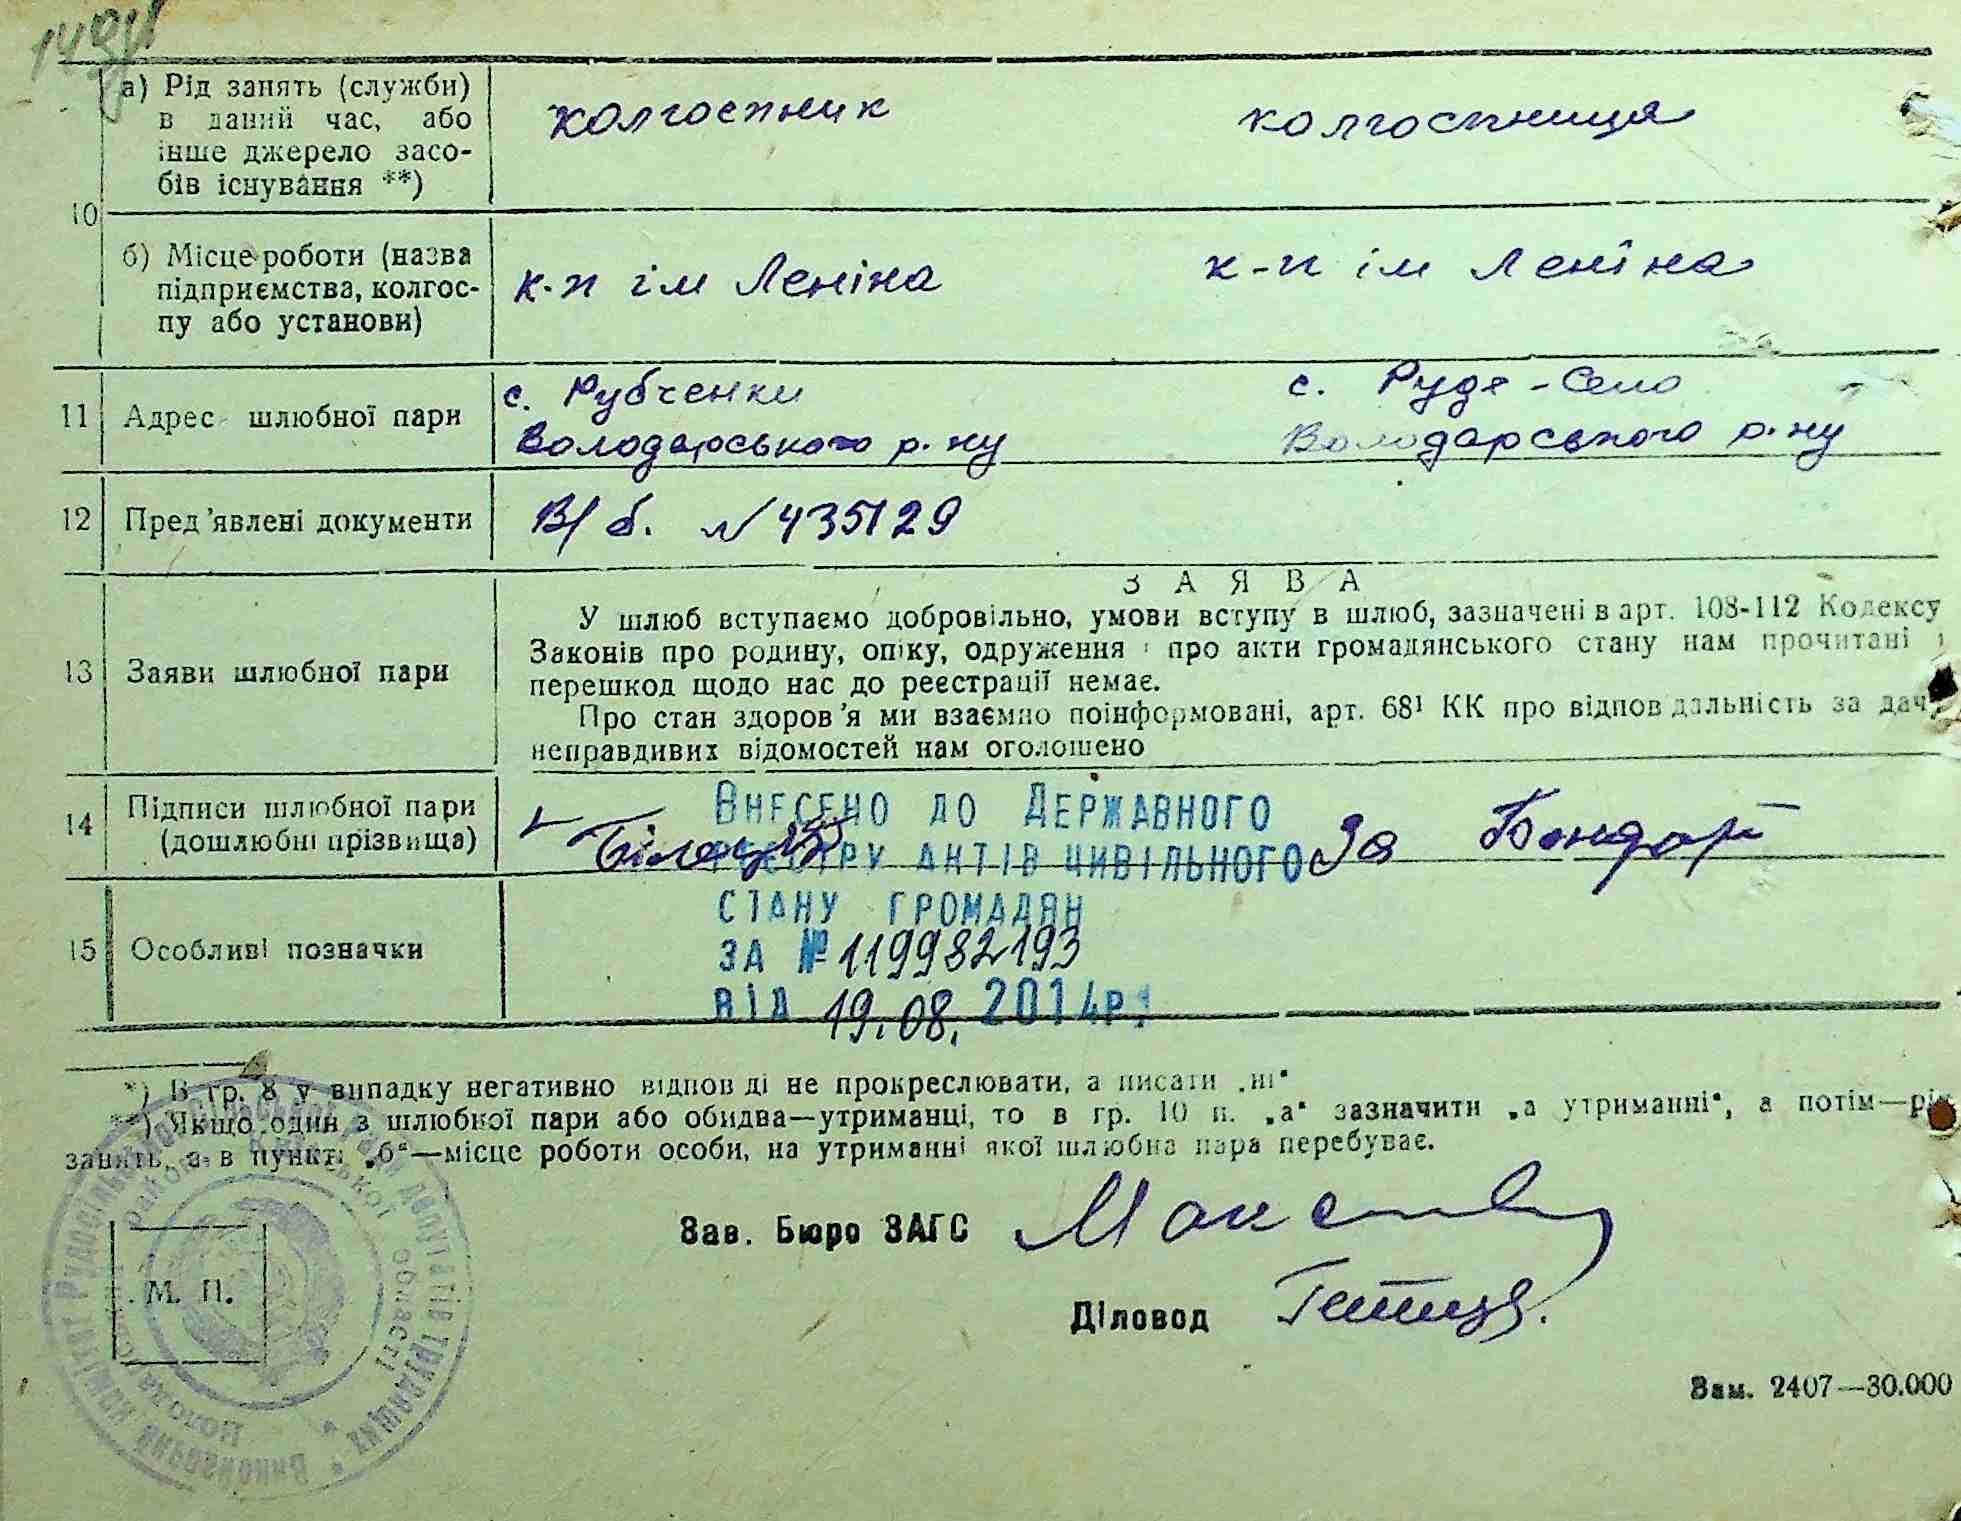 а) Рід занять (служби)
в даний час, або
інше джерело засо-
бів існування **)
колгоспник колгоспниця
10
б) Місце роботи (назва
підприємства, колгос-
пу або установи)
к-п ім Леніна к-п ім Леніна
11 Адрес шлюбної пари
с. Рубченки с. Руде-Село
Володарського р-ну Володарського р-ну
12 Пред'явлені документи В/б. N 435129
ЗАЯВА
13 Заяви шлюбної пари
У шлюб вступаємо добровільно, умови вступу в шлюб, зазначені в арт. 108-112 Кодексу
Законів про родину, опіку, одруження і про акти громадянського стану нам прочитані і
перешкод щодо нас до реєстрації немає.
Про стан здоров'я ми взаємно поінформовані, арт. 68¹ КК про відповідальність за дачу
неправдивих відомостей нам оголошено
14 Підписи шлюбної пари
(дошлюбні прізвища)
За Бондар
Внесено до Державного
реєстру актів цивільного
стану громадян
за № 119982193
від 19.08. 2014р.
15 Особливі позначки
*) В гр. 8 у випадку негативно відпов ді не прокреслювати, а писати „ні“
**) Якщо один з шлюбної пари або обидва—утриманці, то в гр. 10 п. „а“ зазначити „а утриманні“, а потім—рід
занять, а в пункті „б“—місце роботи особи, на утриманні якої шлюбна пара перебуває.
Зав. Бюро ЗАГС
Діловод
М. П.
Виконавчий комітет Рудосільської сільської ради депутатів трудящих
Володарського району Київської області
Зам. 2407—30.000